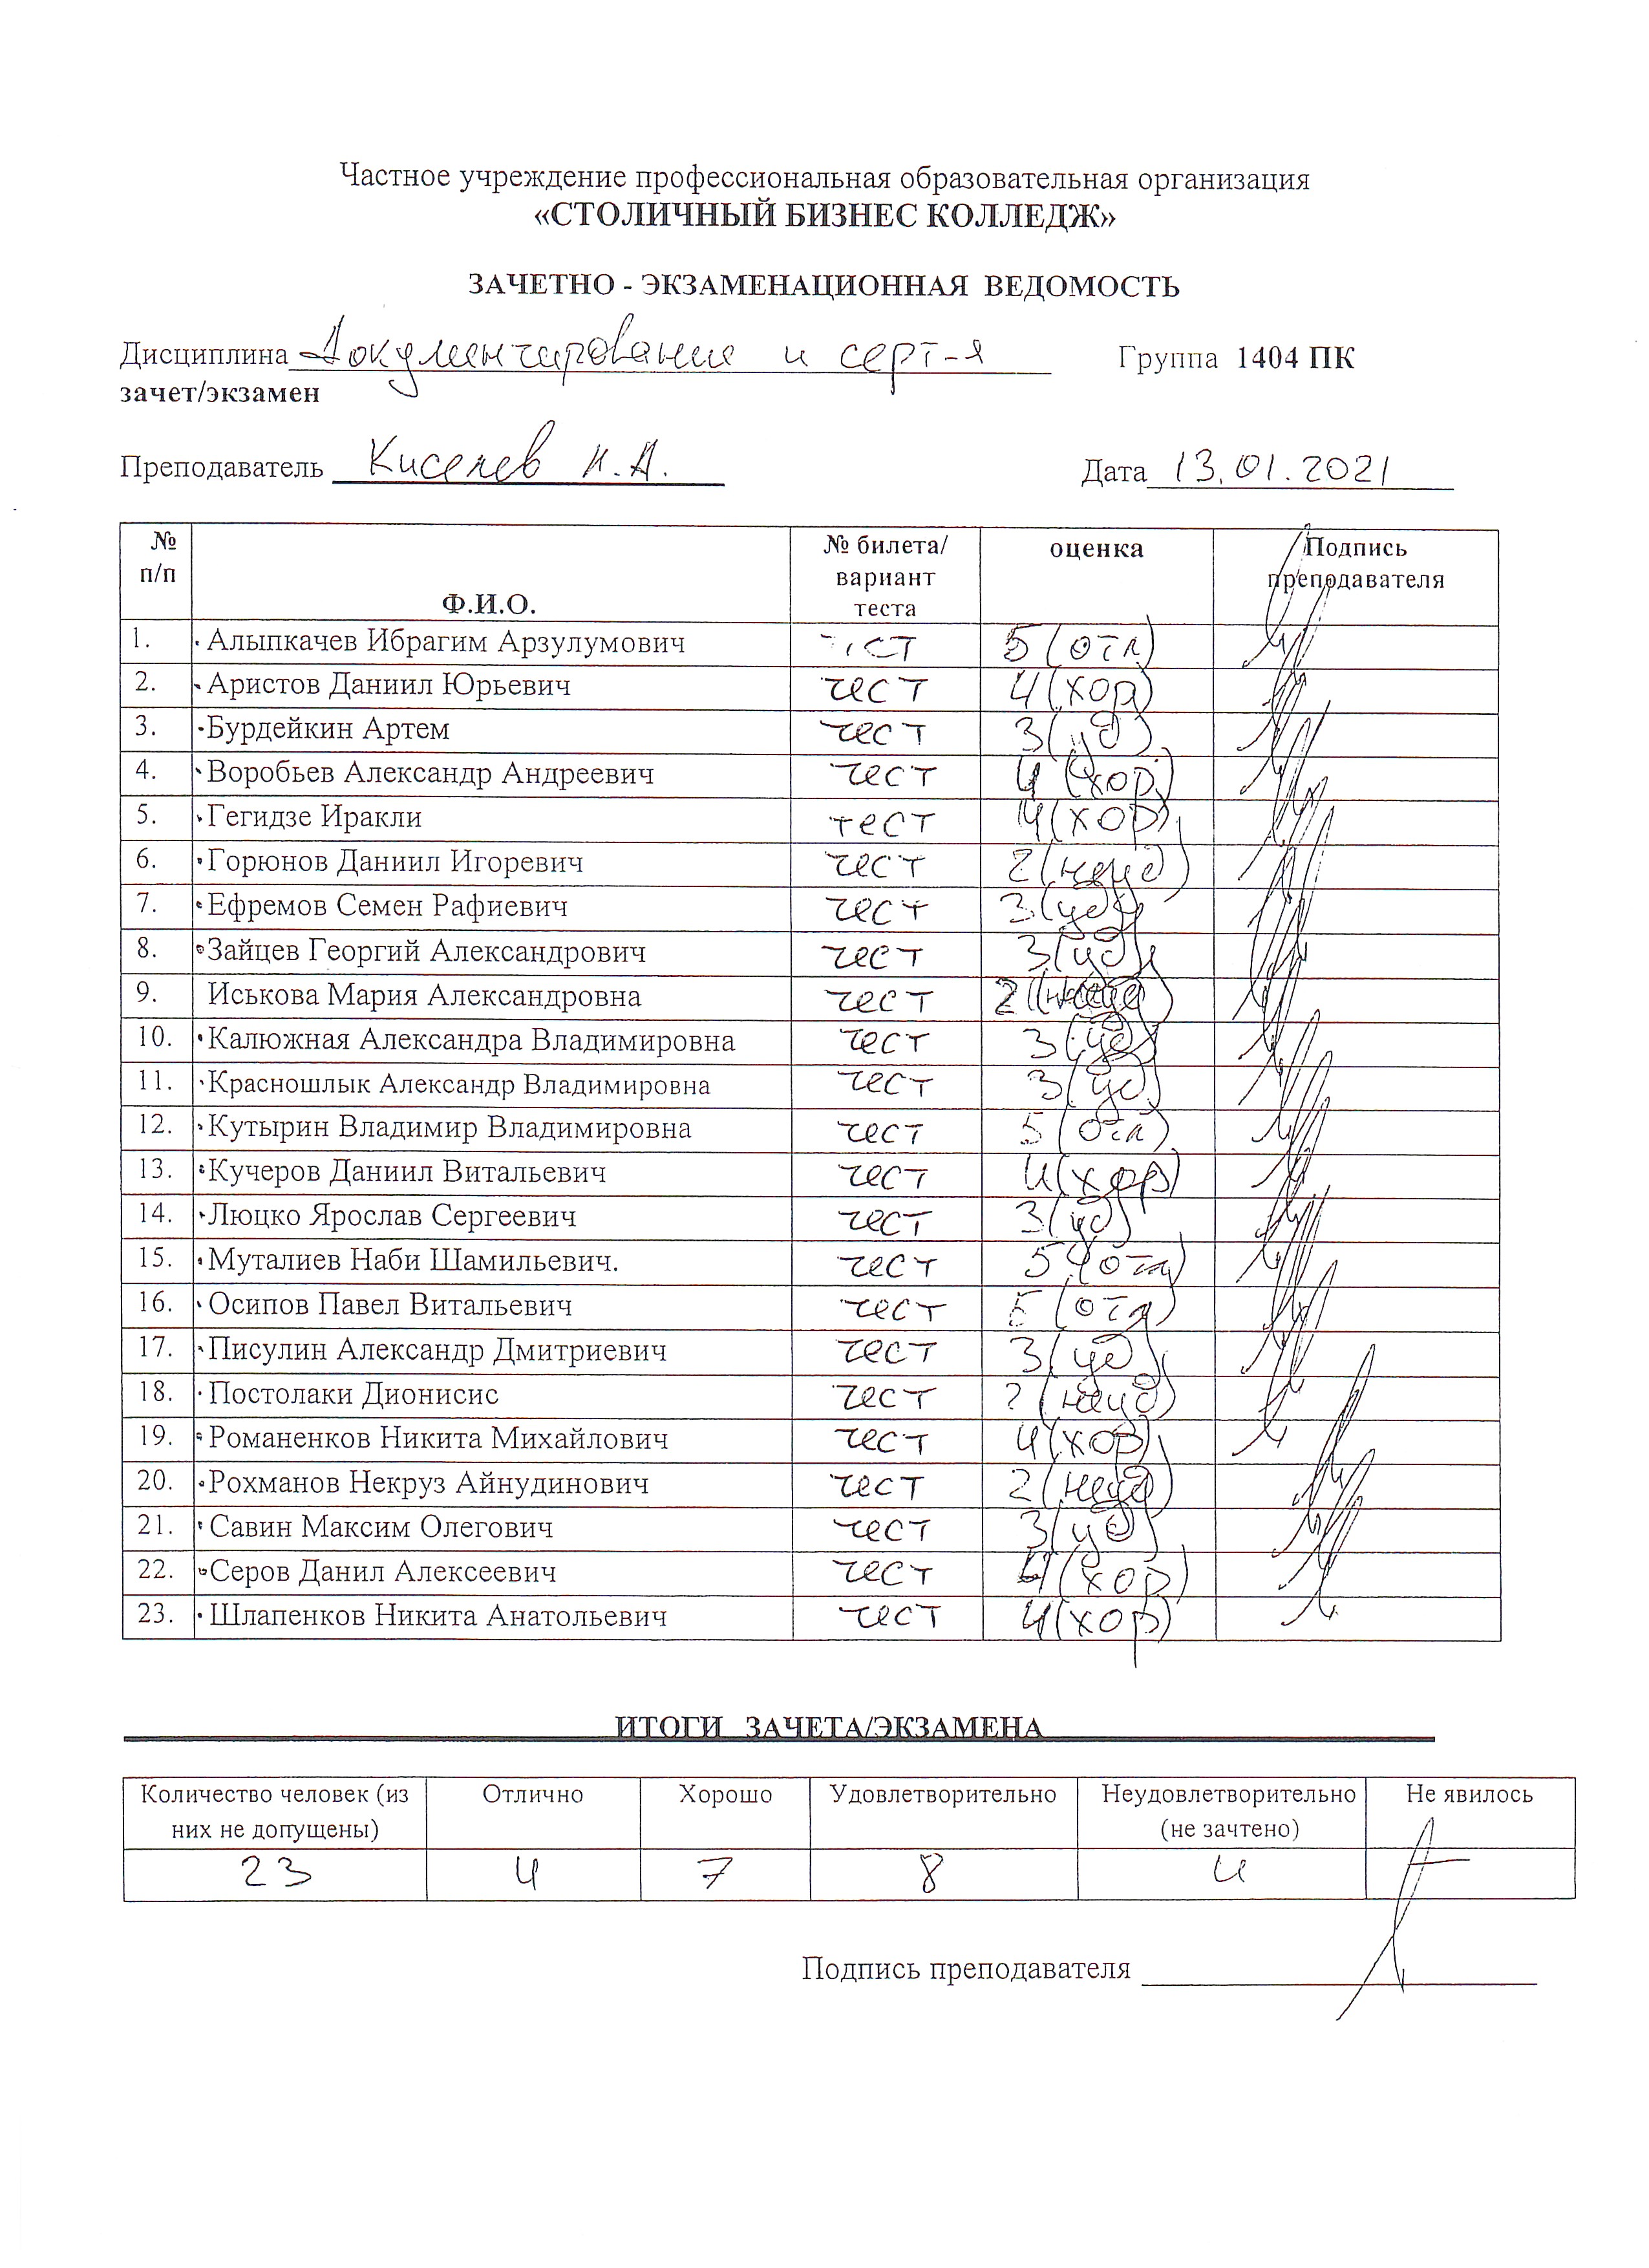 Частное учреждение профессиональная образовательная организация
«СТОЛИЧНЫЙ БИЗНЕС КОЛЛЕДЖ»
ЗАЧЕТНО - ЭКЗАМЕНАЦИОННАЯ ВЕДОМОСТЬ
Дисциплина Документирование и серт-я Группа 1404 ПК
зачет/экзамен
Преподаватель Киселев Н.А. Дата 13.01.2021
№ п/п Ф.И.О. № билета/ вариант теста оценка Подпись преподавателя
1. Алыпкачев Ибрагим Арзулумович тест 5 (отл)
2. Аристов Даниил Юрьевич тест 4 (хор)
3. Бурдейкин Артем тест 3 (уд)
4. Воробьев Александр Андреевич тест 4 (хор)
5. Гегидзе Иракли тест 4 (хор)
6. Горюнов Даниил Игоревич тест 2 (неуд)
7. Ефремов Семен Рафиевич тест 3 (уд)
8. Зайцев Георгий Александрович тест 3 (уд)
9. Иськова Мария Александровна тест 2 (неуд)
10. Калюжная Александра Владимировна тест 3 (уд)
11. Красношлык Александр Владимировна тест 3 (уд)
12. Кутырин Владимир Владимировна тест 5 (отл)
13. Кучеров Даниил Витальевич тест 4 (хор)
14. Люцко Ярослав Сергеевич тест 3 (уд)
15. Муталиев Наби Шамильевич. тест 5 (отл)
16. Осипов Павел Витальевич тест 5 (отл)
17. Писулин Александр Дмитриевич тест 3 (уд)
18. Постолаки Дионисис тест 2 (неуд)
19. Романенков Никита Михайлович тест 4 (хор)
20. Рохманов Некруз Айнудинович тест 2 (неуд)
21. Савин Максим Олегович тест 3 (уд)
22. Серов Данил Алексеевич тест 4 (хор)
23. Шлапенков Никита Анатольевич тест 4 (хор)
ИТОГИ ЗАЧЕТА/ЭКЗАМЕНА
Количество человек (из них не допущены) Отлично Хорошо Удовлетворительно Неудовлетворительно (не зачтено) Не явилось
23 4 7 8 4 —
Подпись преподавателя